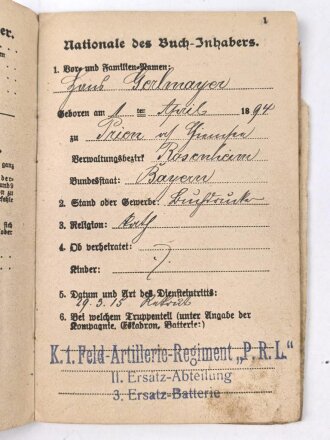 1
Nationale des Buch-Inhabers.
1. Vor- und Familien-Namen:
Hans Gerlmayer
Geboren am 1 ten April 1894
zu Prien a/ Chiemsee
Verwaltungsbezirk Rosenheim
Bundesstaat: Bayern
2. Stand oder Gewerbe: Buchdrucker
3. Religion: kath
4. Ob verheiratet:
Kinder: ./.
5. Datum und Art des Diensteintritts:
29.3.15 Rekrut
6. Bei welchem Truppenteil (unter Angabe der
Kompagnie, Eskadron, Batterie:)
K. 1. Feld-Artillerie-Regiment „P. R. L."
II. Ersatz-Abteilung
3. Ersatz-Batterie